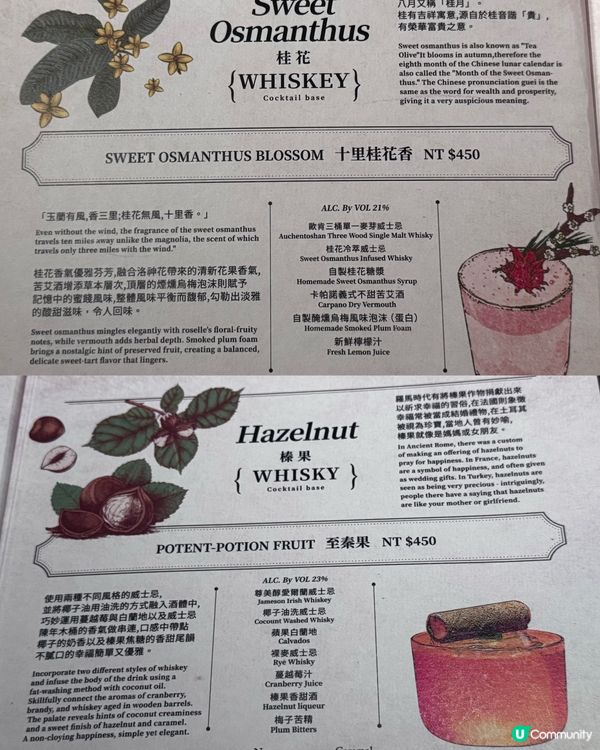 Sweet
Osmanthus
桂花
{WHISKEY}
Cocktail base
八月又稱「桂月」。
桂有吉祥寓意,源自於桂音諧「貴」,
有榮華富貴之意。
Sweet osmanthus is also known as "Tea
Olive"It blooms in autumn,therefore the
eighth month of the Chinese lunar calendar is
also called the "Month of the Sweet Osman-
thus." The Chinese pronunciation guei is the
same as the word for wealth and prosperity,
giving it a very auspicious meaning.
SWEET OSMANTHUS BLOSSOM 十里桂花香 NT $450
「玉蘭有風,香三里;桂花無風,十里香。」
Even without the wind, the fragrance of the sweet osmanthus
travels ten miles away unlike the magnolia, the scent of which
travels only three miles with the wind."
桂花香氣優雅芬芳,融合洛神花帶來的清新花果香氣,
苦艾酒增添草本層次,頂層的煙燻烏梅泡沫則賦予
記憶中的蜜餞風味,整體風味平衡而馥郁,勾勒出淡雅
的酸甜滋味,令人回味。
Sweet osmanthus mingles elegantly with roselle's floral-fruity
notes, while vermouth adds herbal depth. Smoked plum foam
brings a nostalgic hint of preserved fruit, creating a balanced,
delicate sweet-tart flavor that lingers.
ALC. By VOL 21%
歐肯三桶單一麥芽威士忌
Auchentoshan Three Wood Single Malt Whisky
桂花冷萃威士忌
Sweet Osmanthus Infused Whisky
自製桂花糖漿
Homemade Sweet Osmanthus Syrup
卡帕諾義式不甜苦艾酒
Carpano Dry Vermouth
自製醃燻烏梅風味泡沫（蛋白）
Homemade Smoked Plum Foam
新鮮檸檬汁
Fresh Lemon Juice
Hazelnut
榛果
{WHISKY}
Cocktail base
羅馬時代有將榛果作物捐獻出來
以祈求幸福的習俗,在法國則象徵
幸福常被當成結婚禮物,在土耳其
被視為珍寶,當地人曾有妙喻,
榛果就像是媽媽或女朋友。
In Ancient Rome, there was a custom
of making an offering of hazelnuts to
pray for happiness. In France, hazelnuts
are a symbol of happiness, and often given
as wedding gifts. In Turkey, hazelnuts are
seen as being very precious - intriguingly,
people there have a saying that hazelnuts
are like your mother or girlfriend.
POTENT-POTION FRUIT 至秦果 NT $450
使用兩種不同風格的威士忌,
並將椰子油用油洗的方式融入酒體中,
巧妙運用蔓越莓與白蘭地以及威士忌
陳年木桶的香氣做串連,口感中帶點
椰子的奶香以及榛果焦糖的香甜尾韻
不膩口的幸福簡單又優雅。
Incorporate two different styles of whiskey
and infuse the body of the drink using a
fat-washing method with coconut oil.
Skillfully connect the aromas of cranberry,
brandy, and whiskey aged in wooden barrels.
The palate reveals hints of coconut creaminess
and a sweet finish of hazelnut and caramel.
A non-cloying happiness, simple yet elegant.
ALC. By VOL 23%
尊美醇愛爾蘭威士忌
Jameson Irish Whiskey
椰子油洗威士忌
Cocount Washed Whisky
蘋果白蘭地
Calvados
裸麥威士忌
Rye Whisky
蔓越莓汁
Cranberry Juice
榛果香甜酒
Hazelnut liqueur
梅子苦精
Plum Bitters
U Community